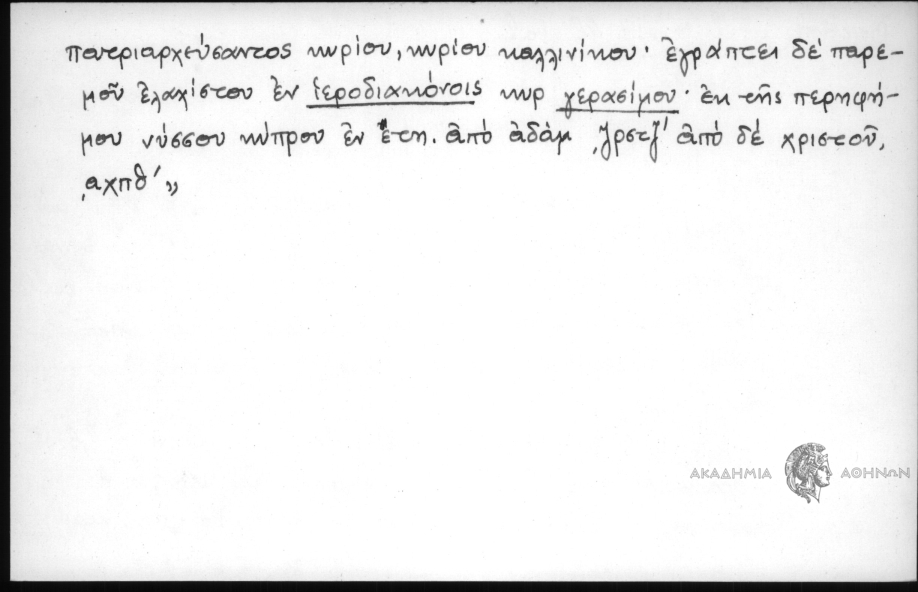 πατεριαρχεύσαντος κυρίου, κυρίου καλλινίκου· ἐγράπτει δέ παρε-
μοῦ ἐλαχίστου ἐν ἱεροδιακόνοις κυρ γερασίμου· ἐκ τῆς περηφή-
μου νύσσου κύπρου ἐν ἔτη. ἀπό ἀδάμ ͵ζρϟζʹ ἀπό δέ χριστοῦ,
͵αχπθʹ »
ΑΚΑΔΗΜΙΑ ΑΘΗΝΩΝ